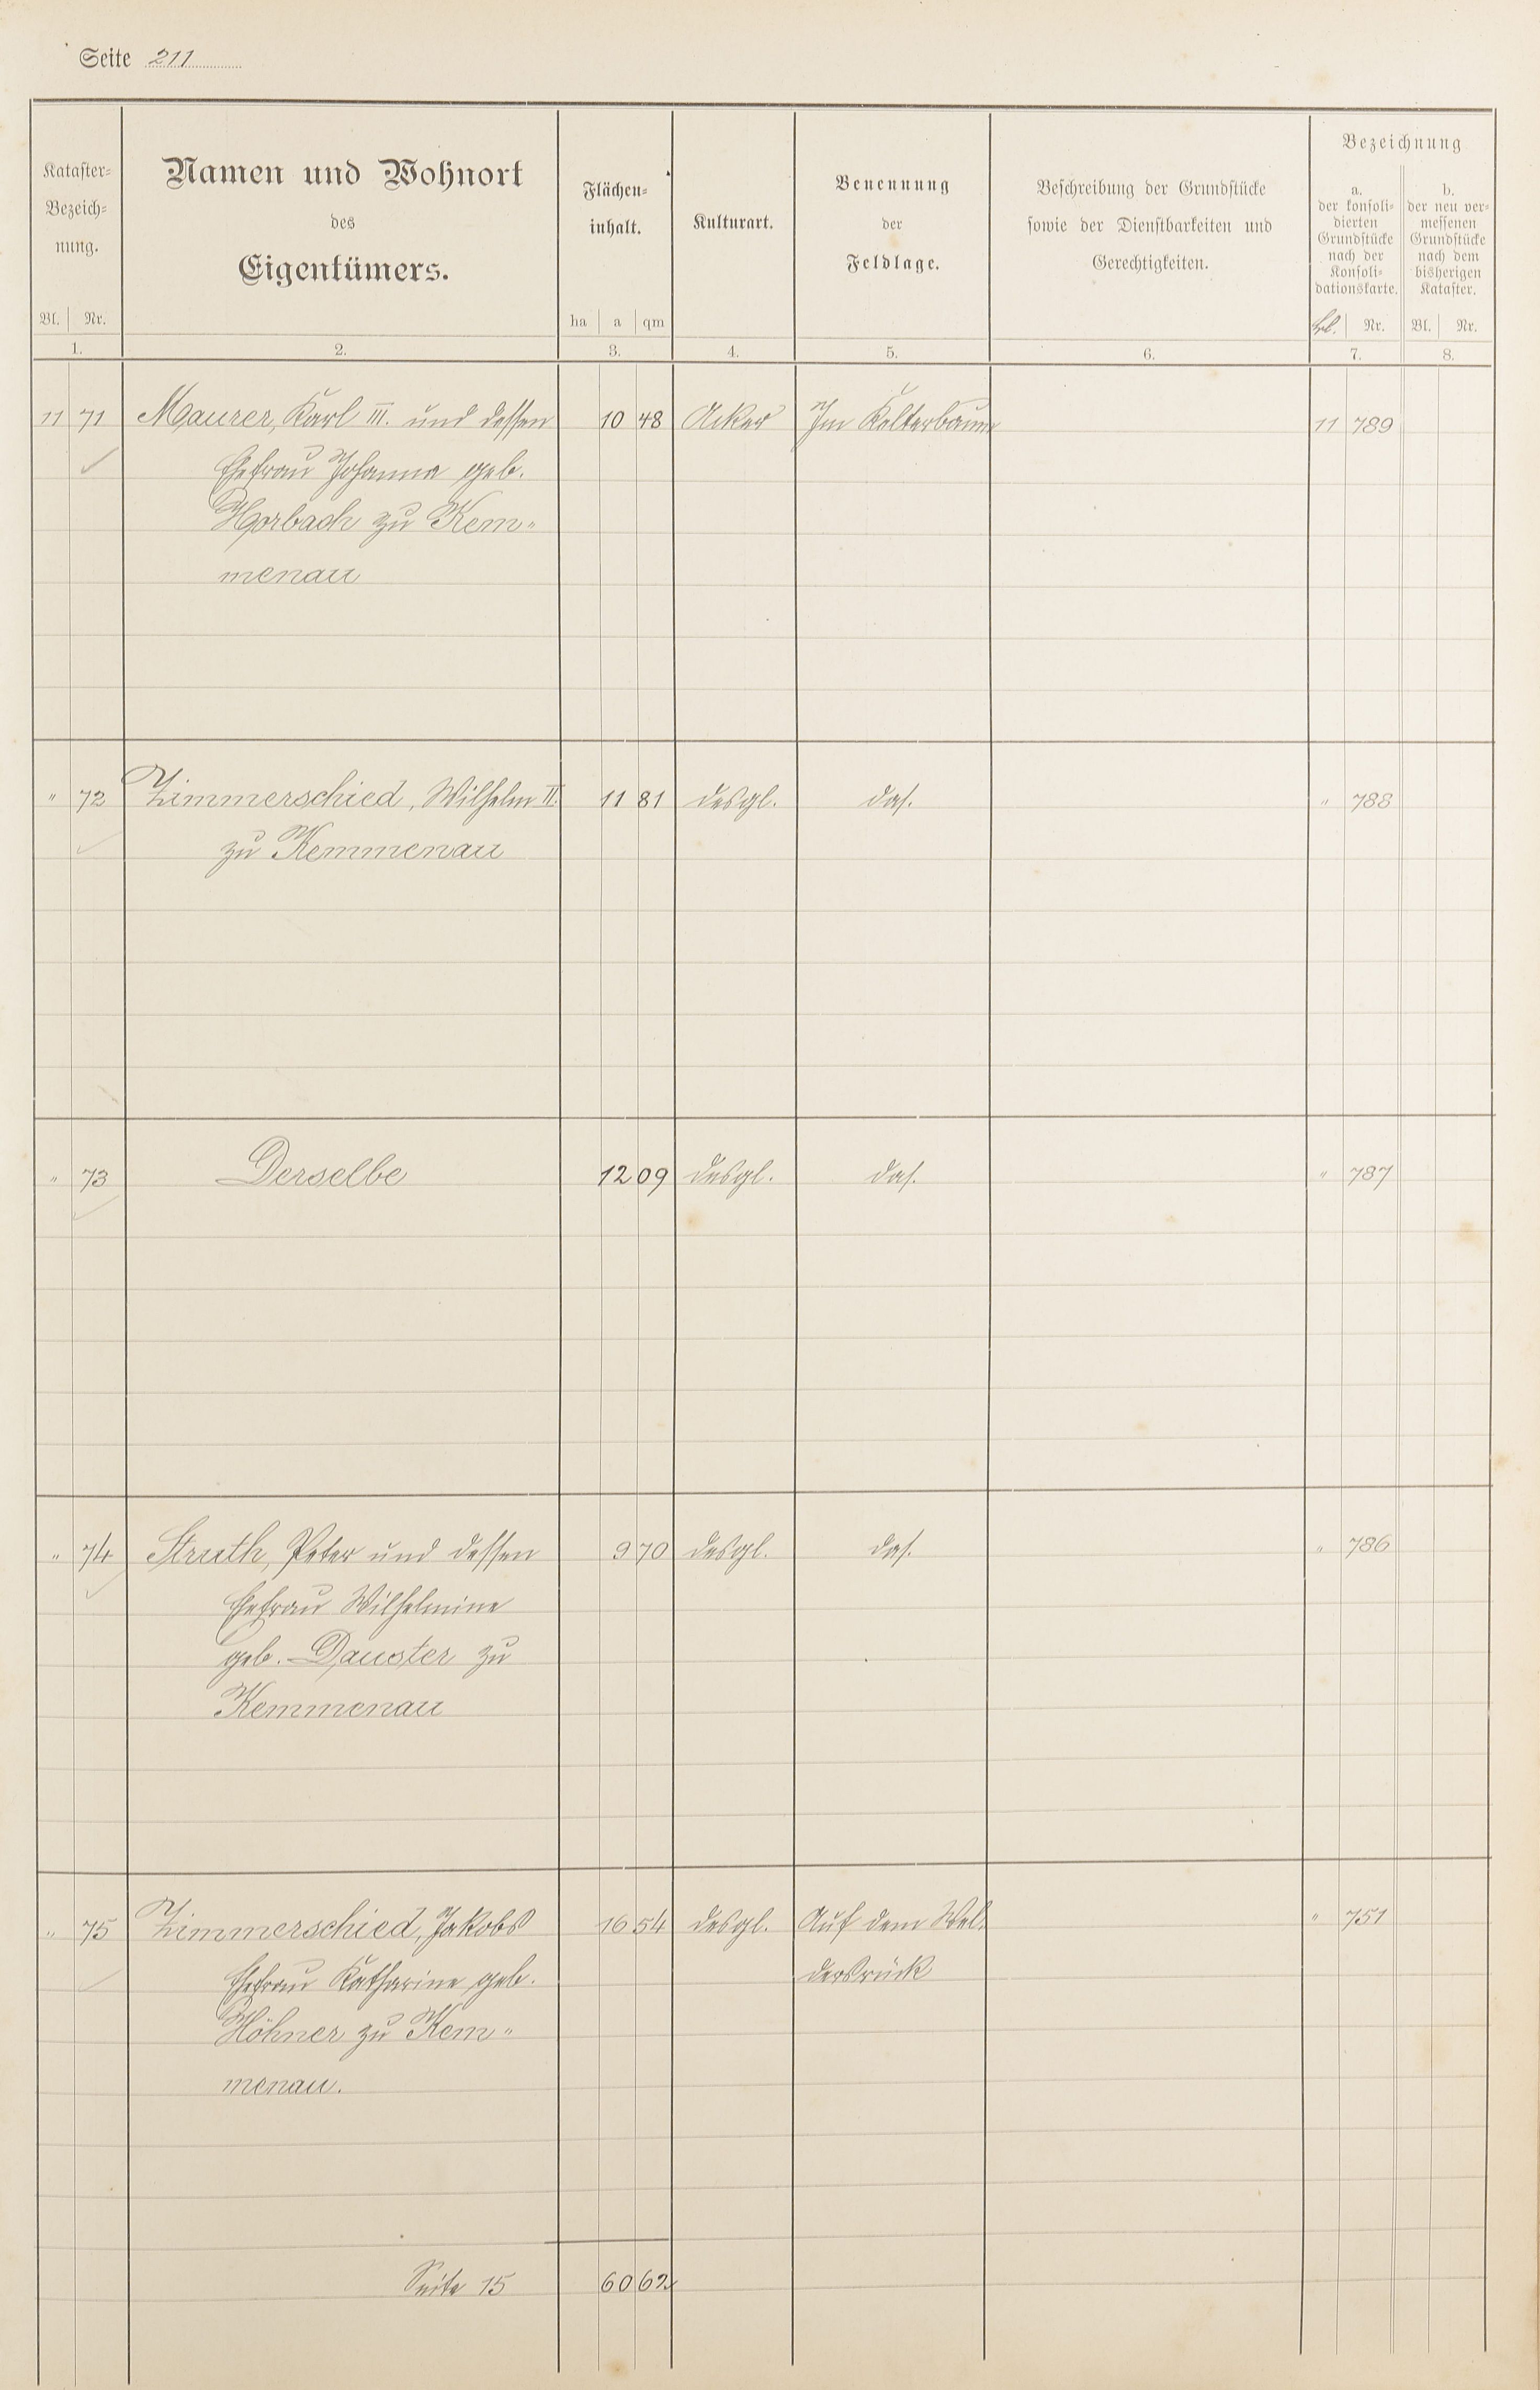 Seite 211
Kataster-
Bezeich-
nung.
Bl. Nr.
1.
Namen und Wohnort
des
Eigentümers.
2.
Flächen-
inhalt.
ha a qm
3.
Kulturart.
4.
Benennung
der
Feldlage.
5.
Beschreibung der Grundstücke
sowie der Dienstbarkeiten und
Gerechtigkeiten.
6.
Bezeichnung
a.
der konsoli-
dierten
Grundstücke
nach der
Konsoli-
dationskarte.
Nr.
7.
b.
der neu ver-
messenen
Grundstücke
nach dem
bisherigen
Kataster.
Bl. Nr.
8.
11 71 Maurer, Karl III. und dessen 10 48 Acker Im Kolterbaum 11 789
Ehefrau Johanna geb.
Horbach zu Kem-
menau
" 72 Zimmerschied, Wilhelm II. 11 81 desgl. das. " 788
zu Kemmenau
" 73 Derselbe 12 09 desgl. das. " 787
" 74 Struth, Peter und dessen 9 70 desgl. das. " 786
Ehefrau Wilhelmine
geb. Dauster zu
Kemmenau
" 75 Zimmerschied, Jakobs 16 54 desgl. Auf dem Wel- " 751
Ehefrau Katharine geb. dersrück
Höhner zu Kem-
menau.
Seite 15 60 62